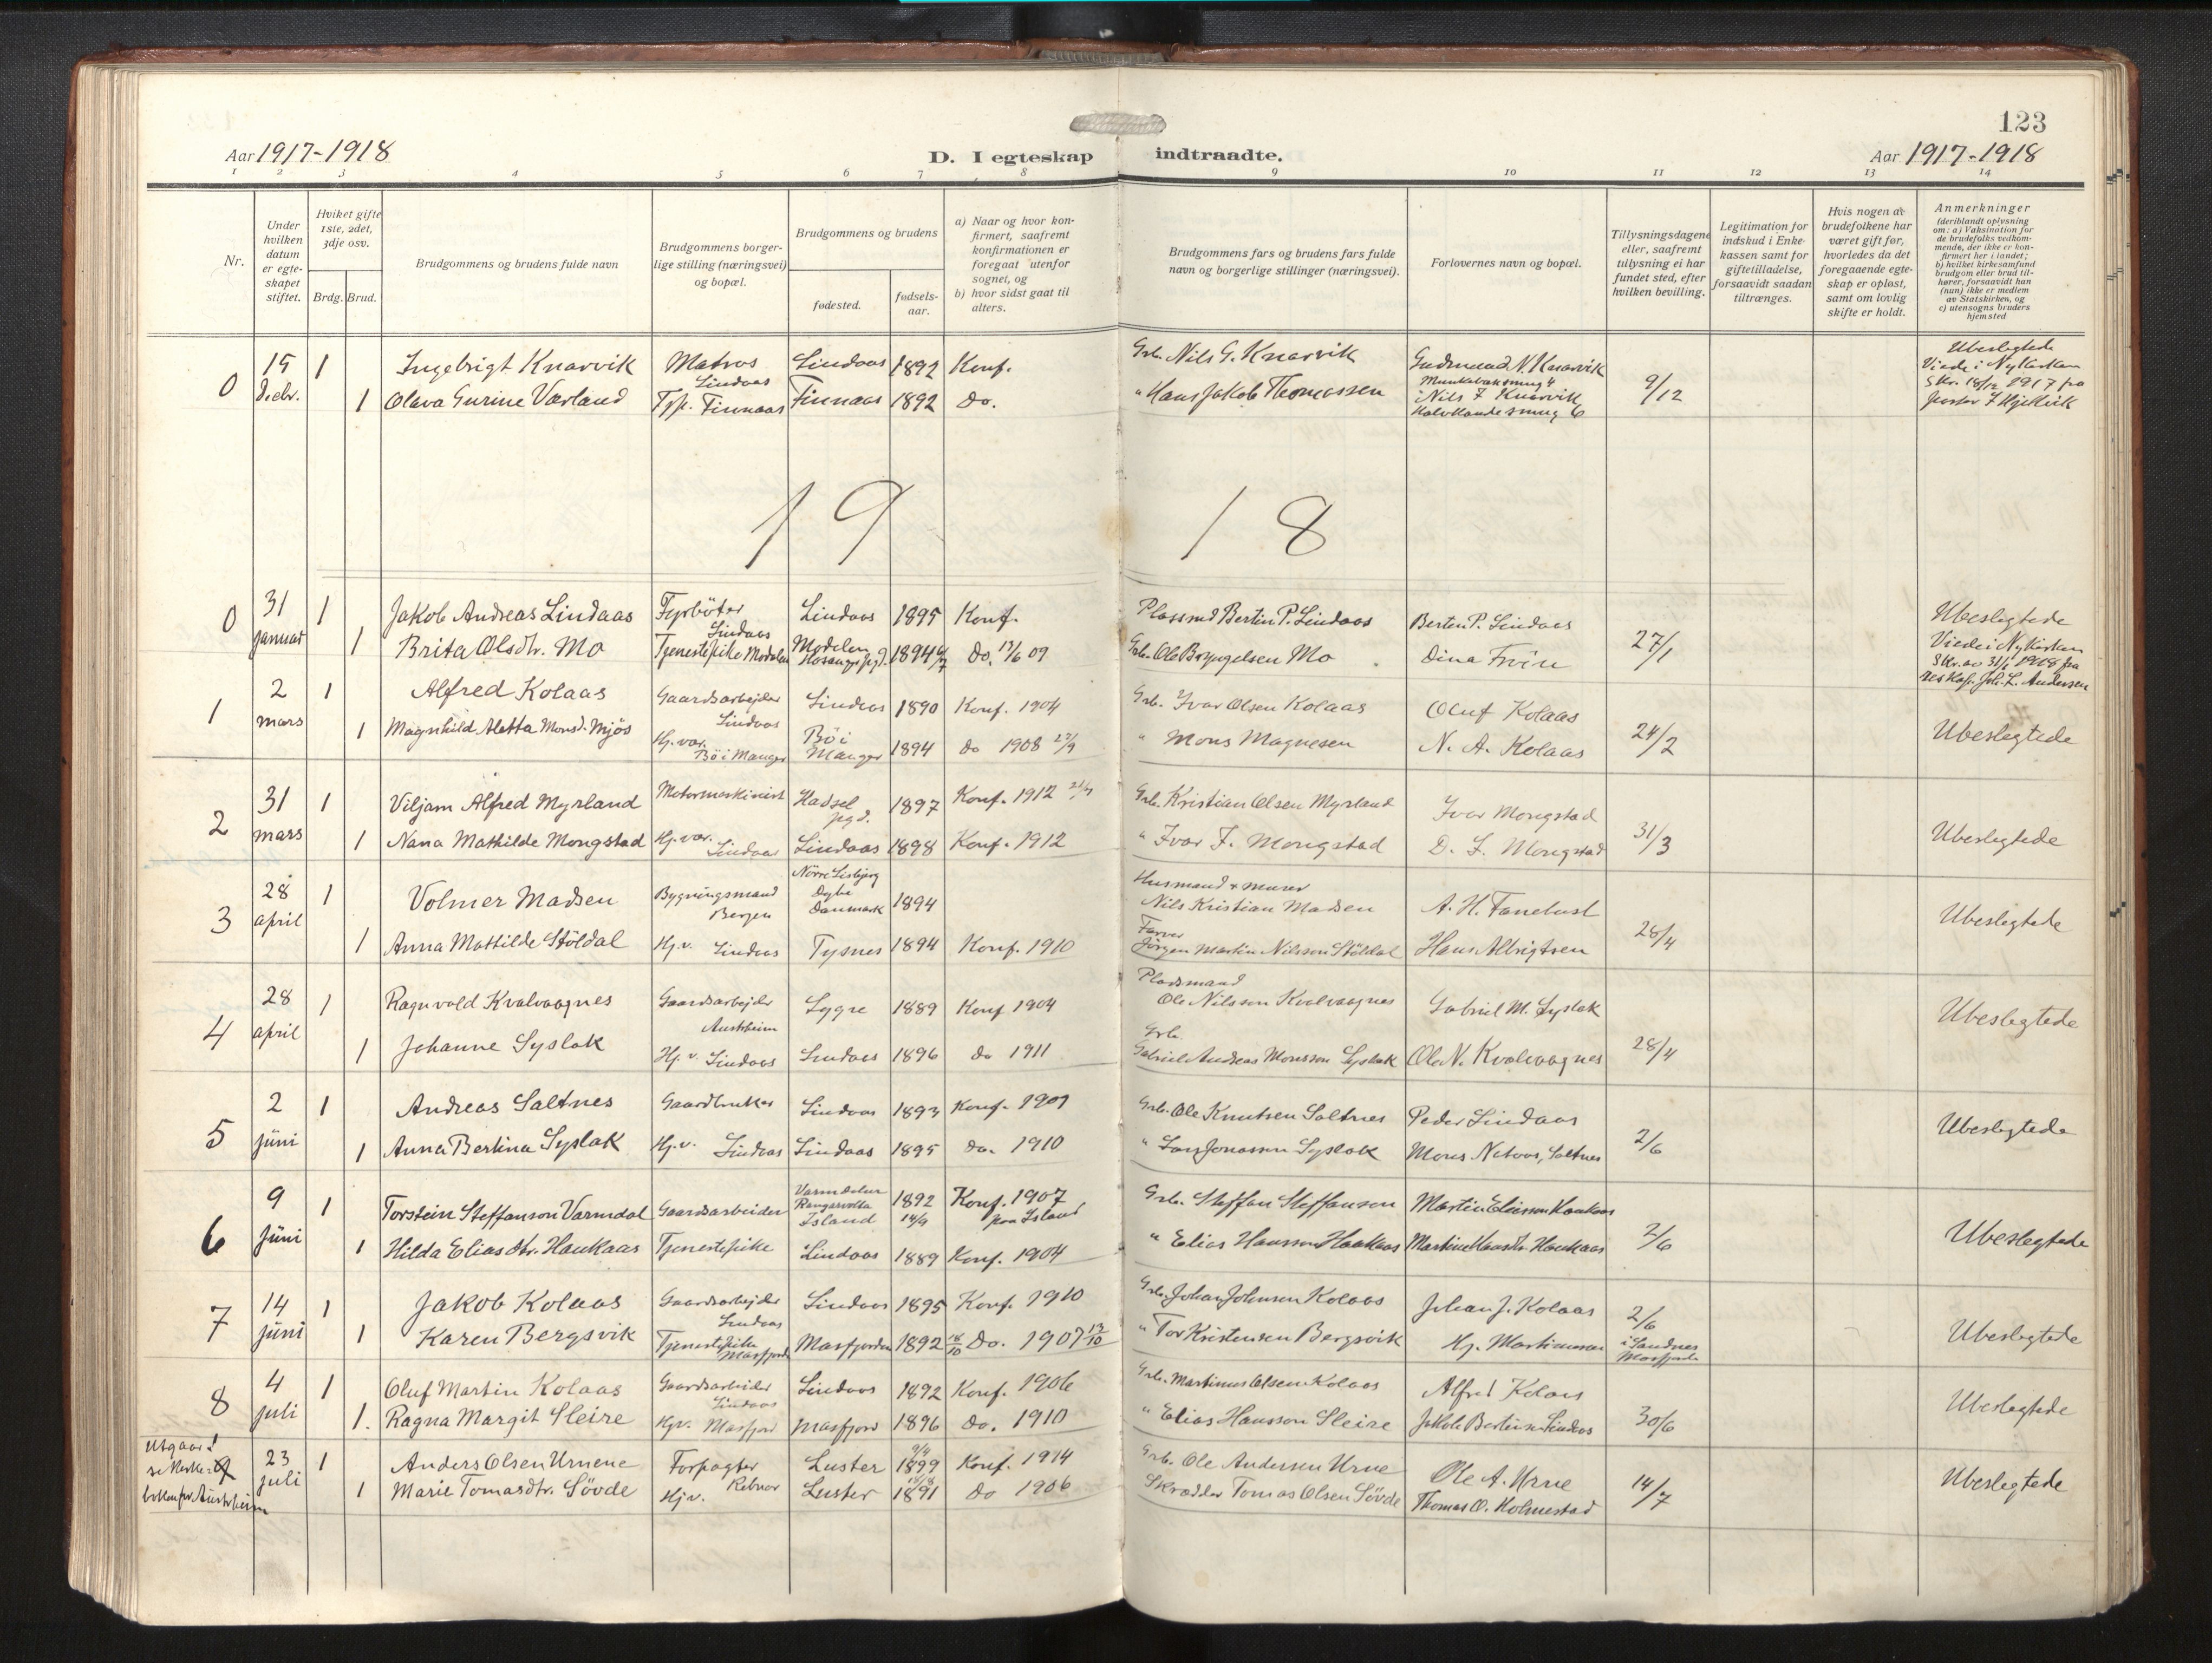 123
Aar 1917-1918
D. I egteskap indtraadte.
Aar 1917-1918
1 2 3 4 5 6 7 8 9 10 11 12 13 14
Nr.
Under hvilken datum er egteskapet stiftet.
Hviket gifte 1ste, 2det, 3dje osv.
Brdg. Brud.
Brudgommens og brudens fulde navn
Brudgommens borgerlige stilling (næringsvei) og bopæl.
Brudgommens og brudens
fødested.
fødselsaar.
a) Naar og hvor konfirmert, saafremt konfirmationen er foregaat utenfor sognet, og
b) hvor sidst gaat til alters.
Brudgommens fars og brudens fars fulde navn og borgerlige stillinger (næringsvei).
Forlovernes navn og bopæl.
Tillysningsdagene eller, saafremt tillysning ei har fundet sted, efter hvilken bevilling.
Legitimation for indskud i Enkekassen samt for giftetilladelse, forsaavidt saadan tiltrænges.
Hvis nogen av brudefolkene har været gift før, hvorledes da det foregaaende egteskap er opløst, samt om lovlig skifte er holdt.
Anmerkninger
(deriblandt oplysning om: a) Vaksination for de brudefolks vedkommende, der ikke er konfirmert her i landet; b) hvilket kirkesamfund brudgom eller brud tilhører, forsaavidt han (hun) ikke er medlem av Statskirken, og c) utensogns bruders hjemsted
0 15 Decbr. 1 Ingebrigt Knarvik Matros Lindaas Lindaas 1892 Konf. Grb. Nils G. Knarvik Gudmund N. Knarvik 9/12 Ubeslegtede
1 Olava Gurine Værland Tjp. Finnaas Finnaas 1892 do. " Hans Jakob Thomassen Nils Knarvik Viede i Nykirken
1918
0 31 januar 1 Jakob Andreas Lindaas Fyrbøter Lindaas Lindaas 1895 Konf. Plassmd Bertin P. Lindaas Berten P. Lindaas 27/1 Ubeslegtede
1 Brita Olsdtr. Mo Tjenestepike Modalen Modalen 1894 Do. 13/6 09 Grb. Ole Brynjelsen Mo Viede i Nykirken
1 2 mars 1 Alfred Kolaas Gaardsarbejder Lindaas Lindaas 1890 Konf. 1904 Grb. Ivar Olsen Kolaas Oluf Kolaas 24/2 Ubeslegtede
1 Magnhild Aletta Monsd. Mjøs Hj. vær. Bö i Manger Bö i Manger 1894 do 1908 27/9 " Mons Magnesen N. A. Kolaas
2 31 mars 1 Viljam Alfred Myrland Motormaskinist Hadsel pgd. 1897 Konf. 1912 Grb. Kristian Olsen Myrland Ivar Mongstad 31/3 Ubeslegtede
1 Nana Mathilde Mongstad Hj. vær. Lindaas Lindaas 1898 Konf. 1912 " Ivar F. Mongstad Mongstad
3 28 april 1 Volmer Madsen Bygningsmand Bergen Danmark 1894 Husmand & murer Nils Kristian Madsen A. H. Fanebust 28/4 Ubeslegtede
1 Anna Mathilde Stöldal Hj. v. Lindaas Tysnes 1894 Konf. 1910 Farver Jörgen Martin Nilsson Stöldal Hans Albrigtsen
4 28 april 1 Ragnvald Kvalvaagnes Gaardsarbejder Austrheim Lygre 1889 Konf 1904 Pladsmand Ole Nilsson Kvalvaagnes Gabriel M. Syslak 28/4 Ubeslegtede
1 Johanne Syslak Hj. v. Lindaas Lindaas 1896 do 1911 Grb. Gabriel Andreas Monsson Syslak Ole N. Kvalvaagnes
5 2 jüni 1 Andreas Saltnes Gaardbruker Lindaas 1893 Konf. 1909 Grb. Ole Knutsen Saltnes Peder Lindaas 2/6 Ubeslegtede
1 Anna Bertina Syslak Hj. v. Lindaas Lindaas 1895 do. 1910 " Lars Jonassen Syslak Mons Saltnes
6 9 jüni 1 Torstein Steffanson Varmdal Gaardsarbeider Island 1892 Konf. 1907 paa Island Grb. Steffan Steffansen Martin Eliassen Haukaas 2/6 Ubeslegtede
1 Hilda Elias dtr. Haukaas Tjenestepike Lindaas 1889 Konf. 1904 " Elias Hansson Haukaas Martin Haukaas
7 14 jüni 1 Jakob Kolaas Gaardsarbejder Lindaas Lindaas 1895 Konf. 1910 Grb. Johan Johnsen Kolaas Johan J. Kolaas 2/6 Ubeslegtede
1 Karen Bergsvik Tjenestepike Masfjorden Masfjorden 1892 18/10 Do. 1907 13/10 " Tor Kristensen Bergsvik Hj. Martinussen i Sandnes
8 4 juli 1 Oluf Martin Kolaas Gaardsarbeider Lindaas Lindaas 1892 Konf. 1906 Grb. Martinus Olsen Kolaas Alfred Kolaas 30/6 Ubeslegtede
1. Ragna Margit Sleire Hjv. Masfjord Masfjord 1896 do. 1910 " Elias Hansson Sleire Jakob Bertinsen Lindaas
Utgaar!
23 juli 1 Anders Olsen Urnene Forpagter Luster 1899 Konf. 1914 Grb. Ole Andersen Urne Ole A. Urne 14/7 Ubeslegtede
1 Marie Tomasdtr. Sövde Hjv. Luster 1891 do 1906 Skrædder Tomas Olsen Sövde Thomas O. Holmestad